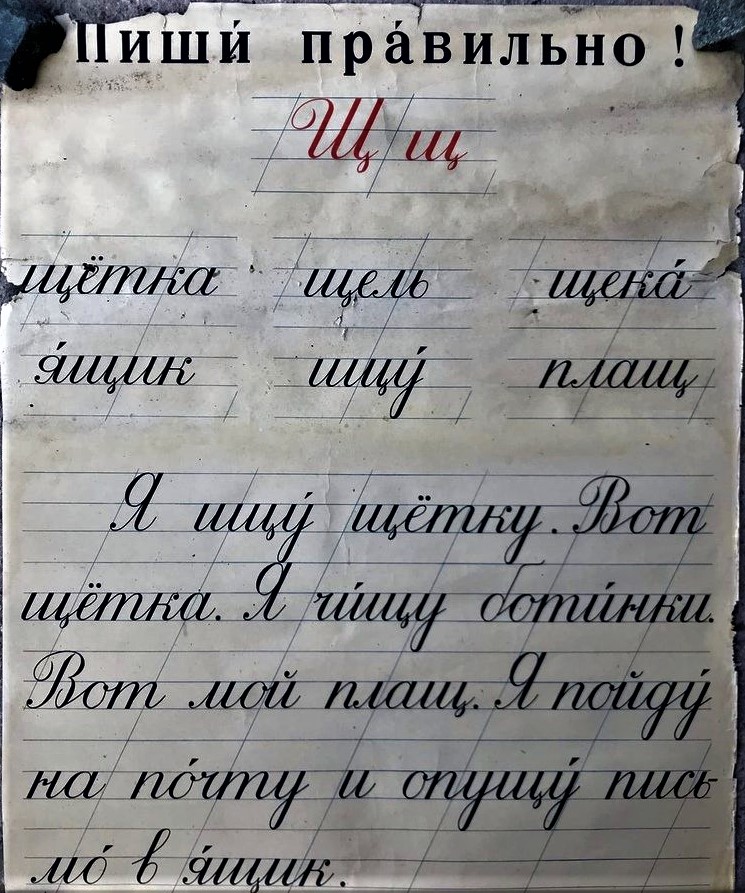 Пиши́ пра́вильно!
Щ щ
щётка щель щека́
я́щик ищу́ плащ
Я ищу́ щётку. Вот
щётка. Я чи́щу боти́нки.
Вот мой плащ. Я пойду́
на по́чту и опущу́ пись-
мо́ в я́щик.